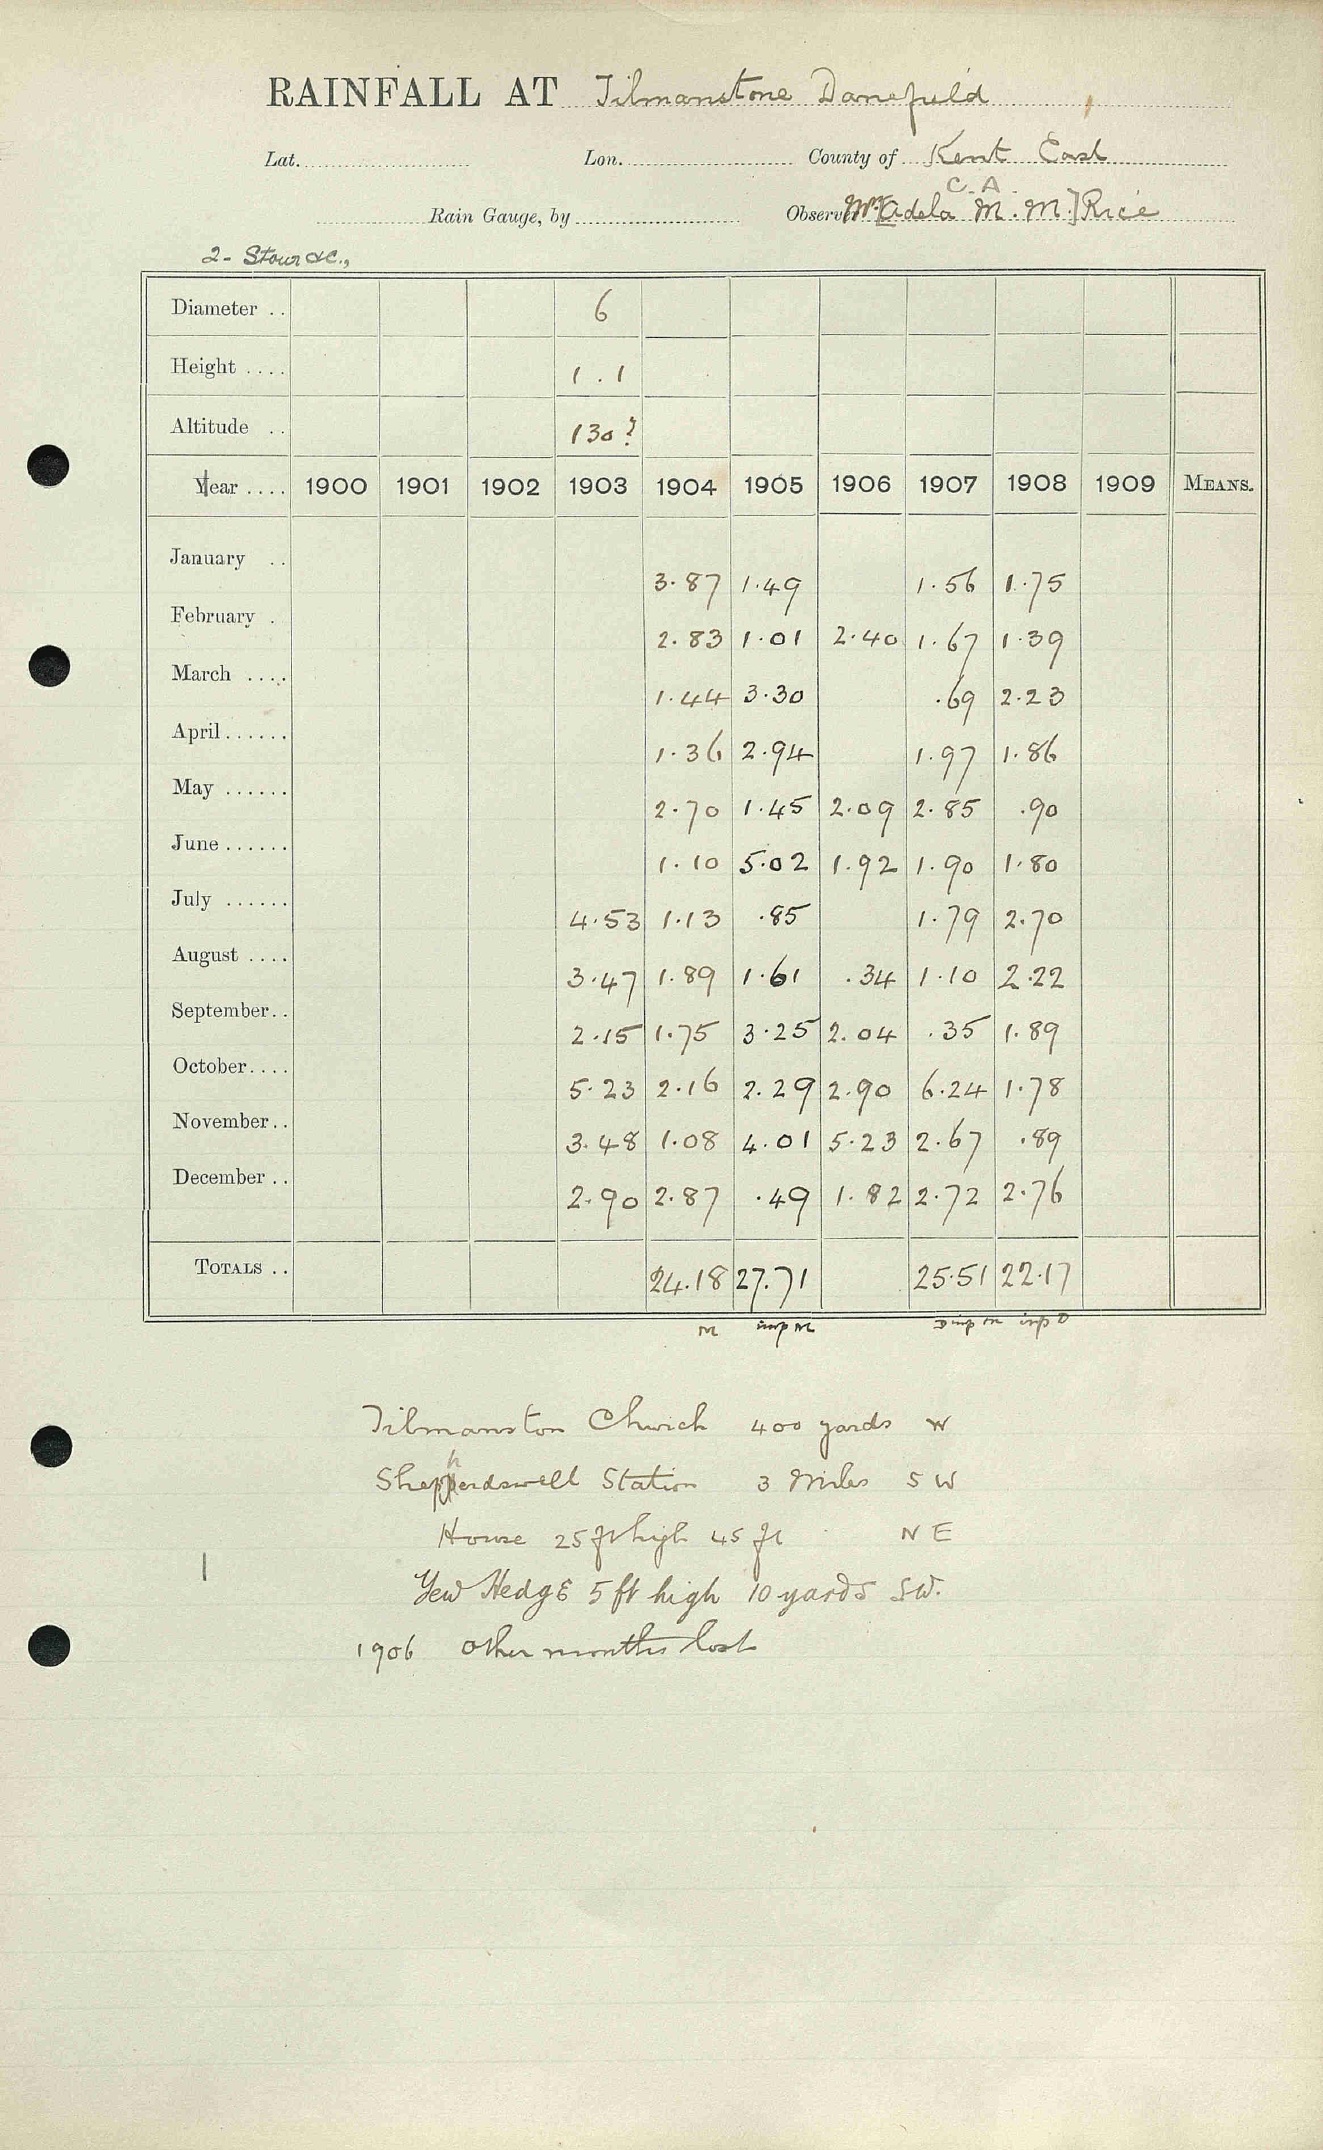 RAINFALL AT Tilmanstone Danefield
Lat. Lon. County of Kent East
C. A.
Rain Gauge, by Observer Mrs [Adela M. M.] Rice
2 - Stour &c.,
Diameter .. 6
Height .... 1 . 1
Altitude .. 130?
Year .... 1900 1901 1902 1903 1904 1905 1906 1907 1908 1909 MEANS.
January .. 3.87 1.49 1.56 1.75
February . 2.83 1.01 2.40 1.67 1.39
March .... 1.44 3.30 .69 2.23
April...... 1.36 2.94 1.97 1.86
May ...... 2.70 1.45 2.09 2.85 .90
June ...... 1.10 5.02 1.92 1.90 1.80
July ...... 4.53 1.13 .85 1.79 2.70
August .... 3.47 1.89 1.61 .34 1.10 2.22
September.. 2.15 1.75 3.25 2.04 .35 1.89
October.... 5.23 2.16 2.29 2.90 6.24 1.78
November.. 3.48 1.08 4.01 5.23 2.67 .89
December .. 2.90 2.87 .49 1.82 2.72 2.76
TOTALS .. 24.18 27.71 25.51 22.17
M imp M D imp M imp D
Tilmanston Church 400 yards W
Shepherdswell Station 3 Miles SW
House 25 ft high 45 ft NE
Yew Hedge 5 ft high 10 yards SW.
1906 Other months lost